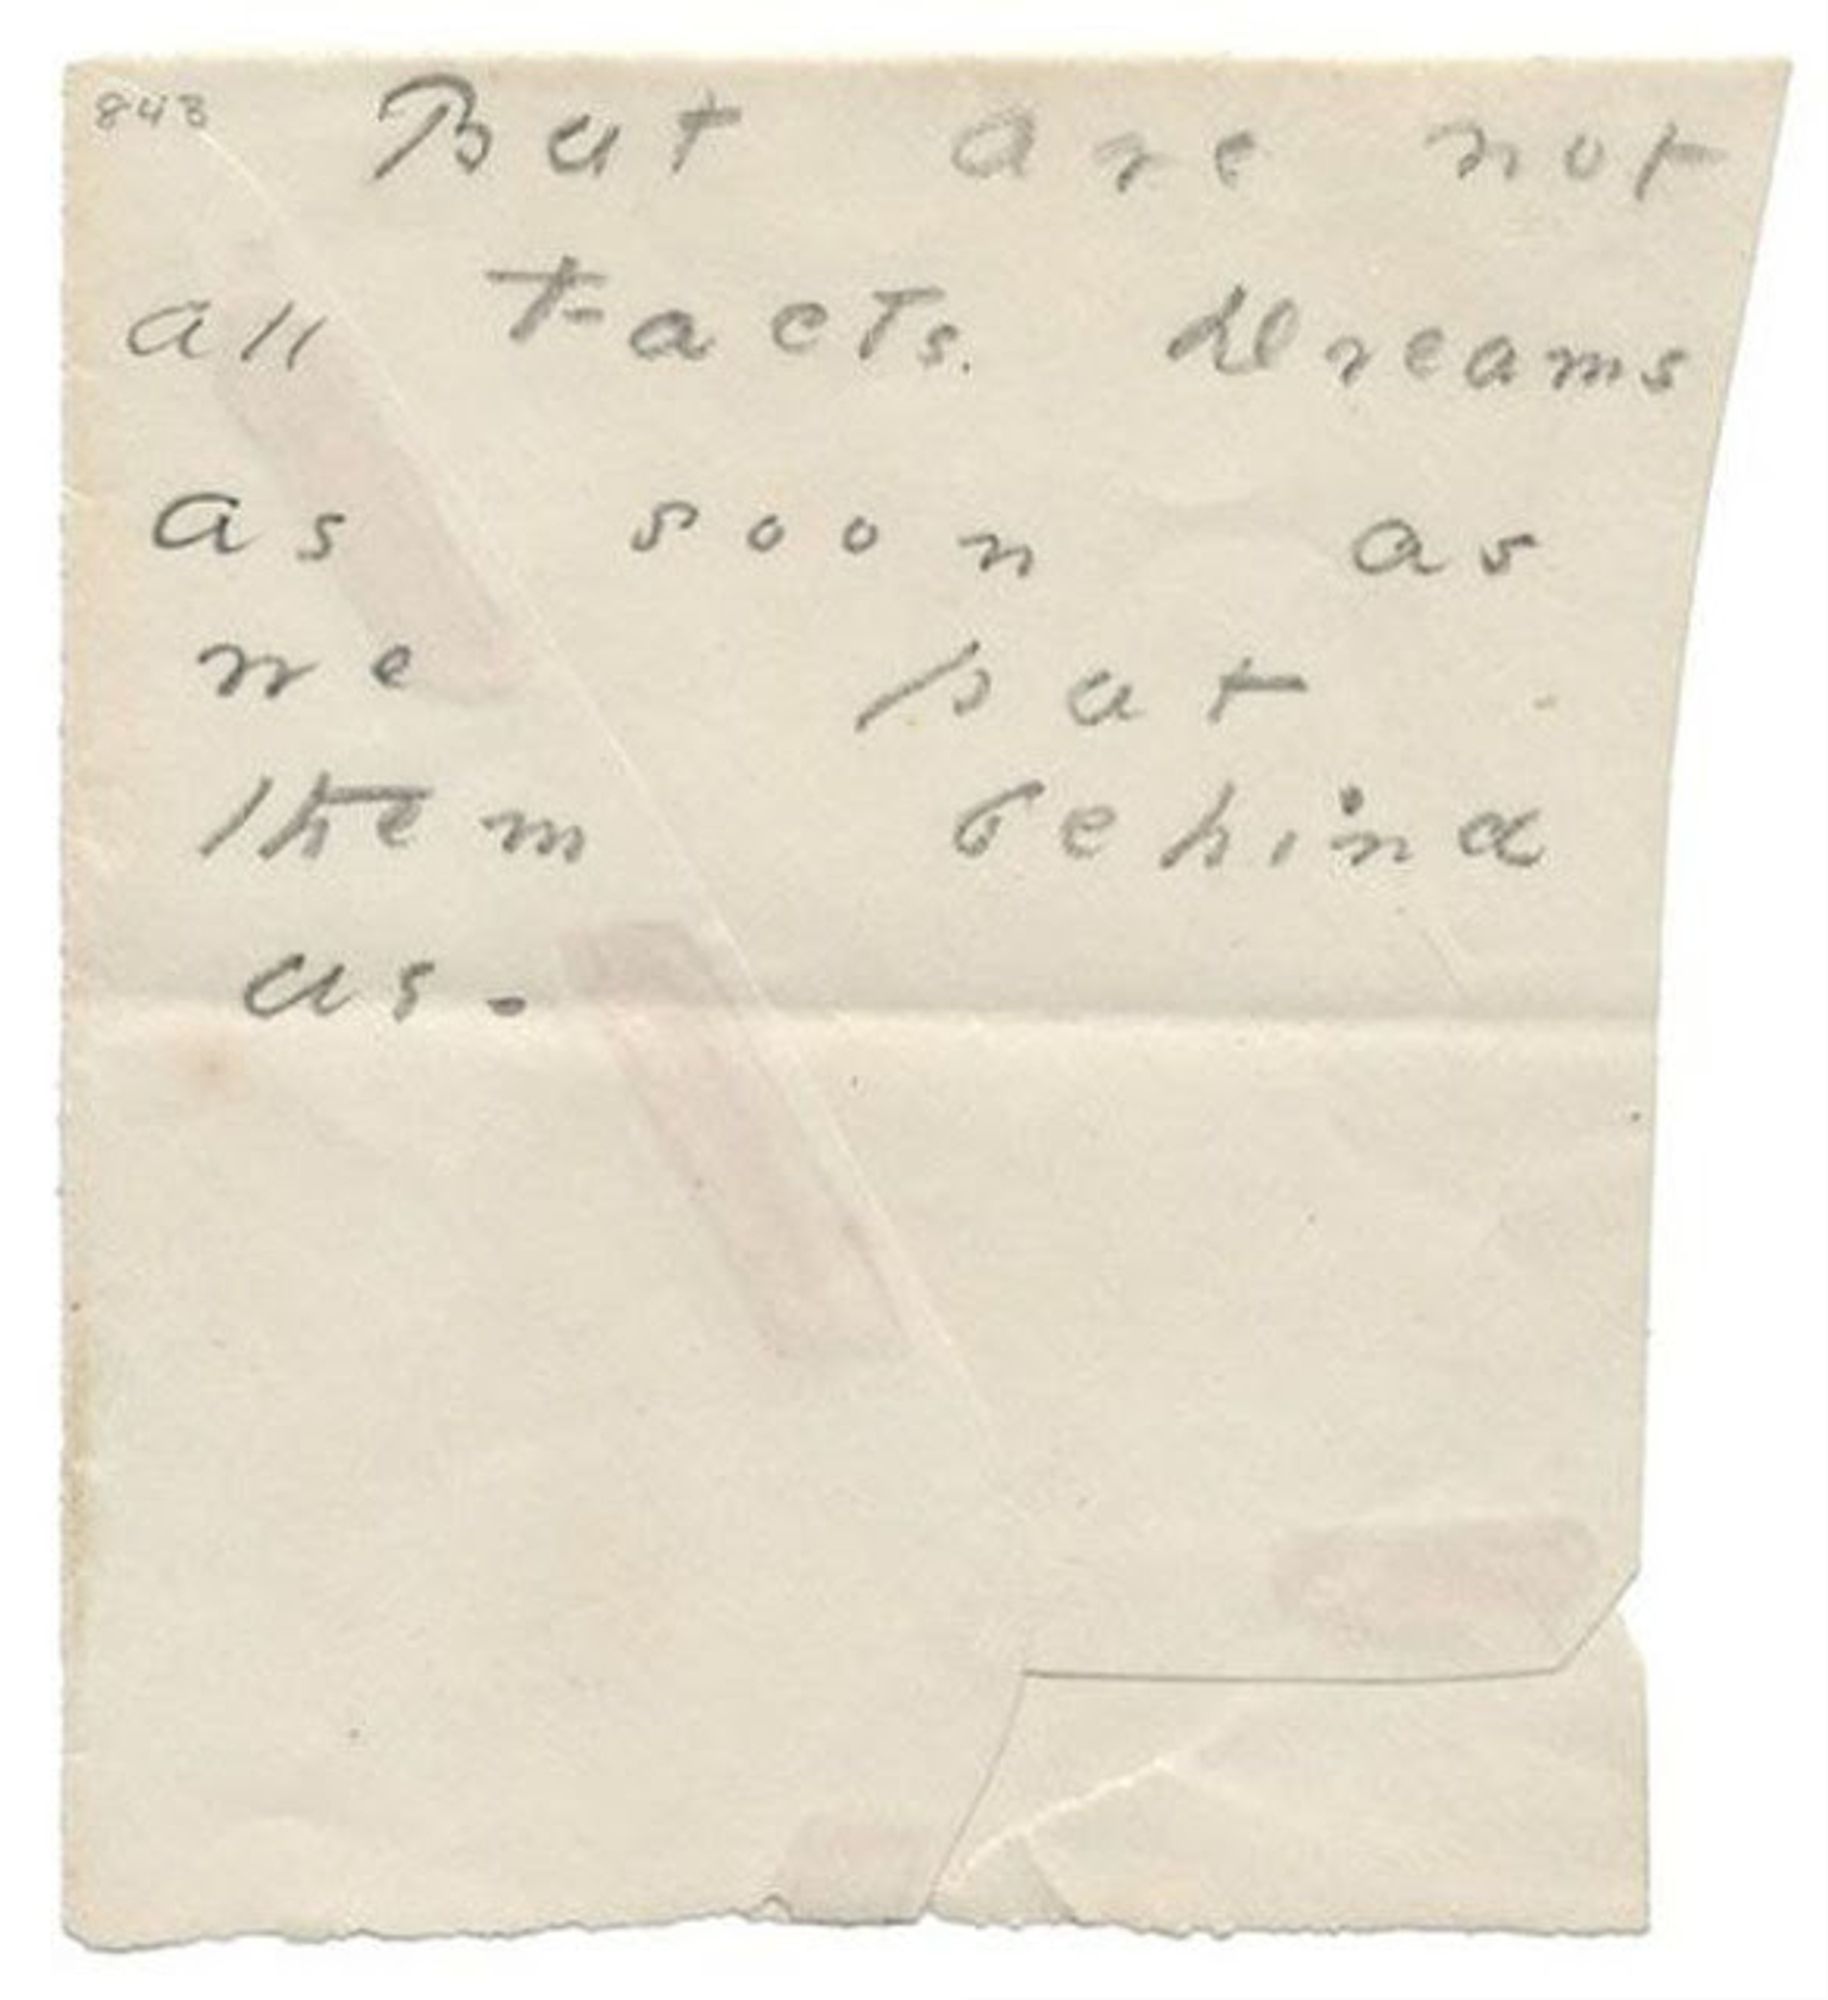 843 But are not
all Facts Dreams
as soon as
we put
them behind
us -